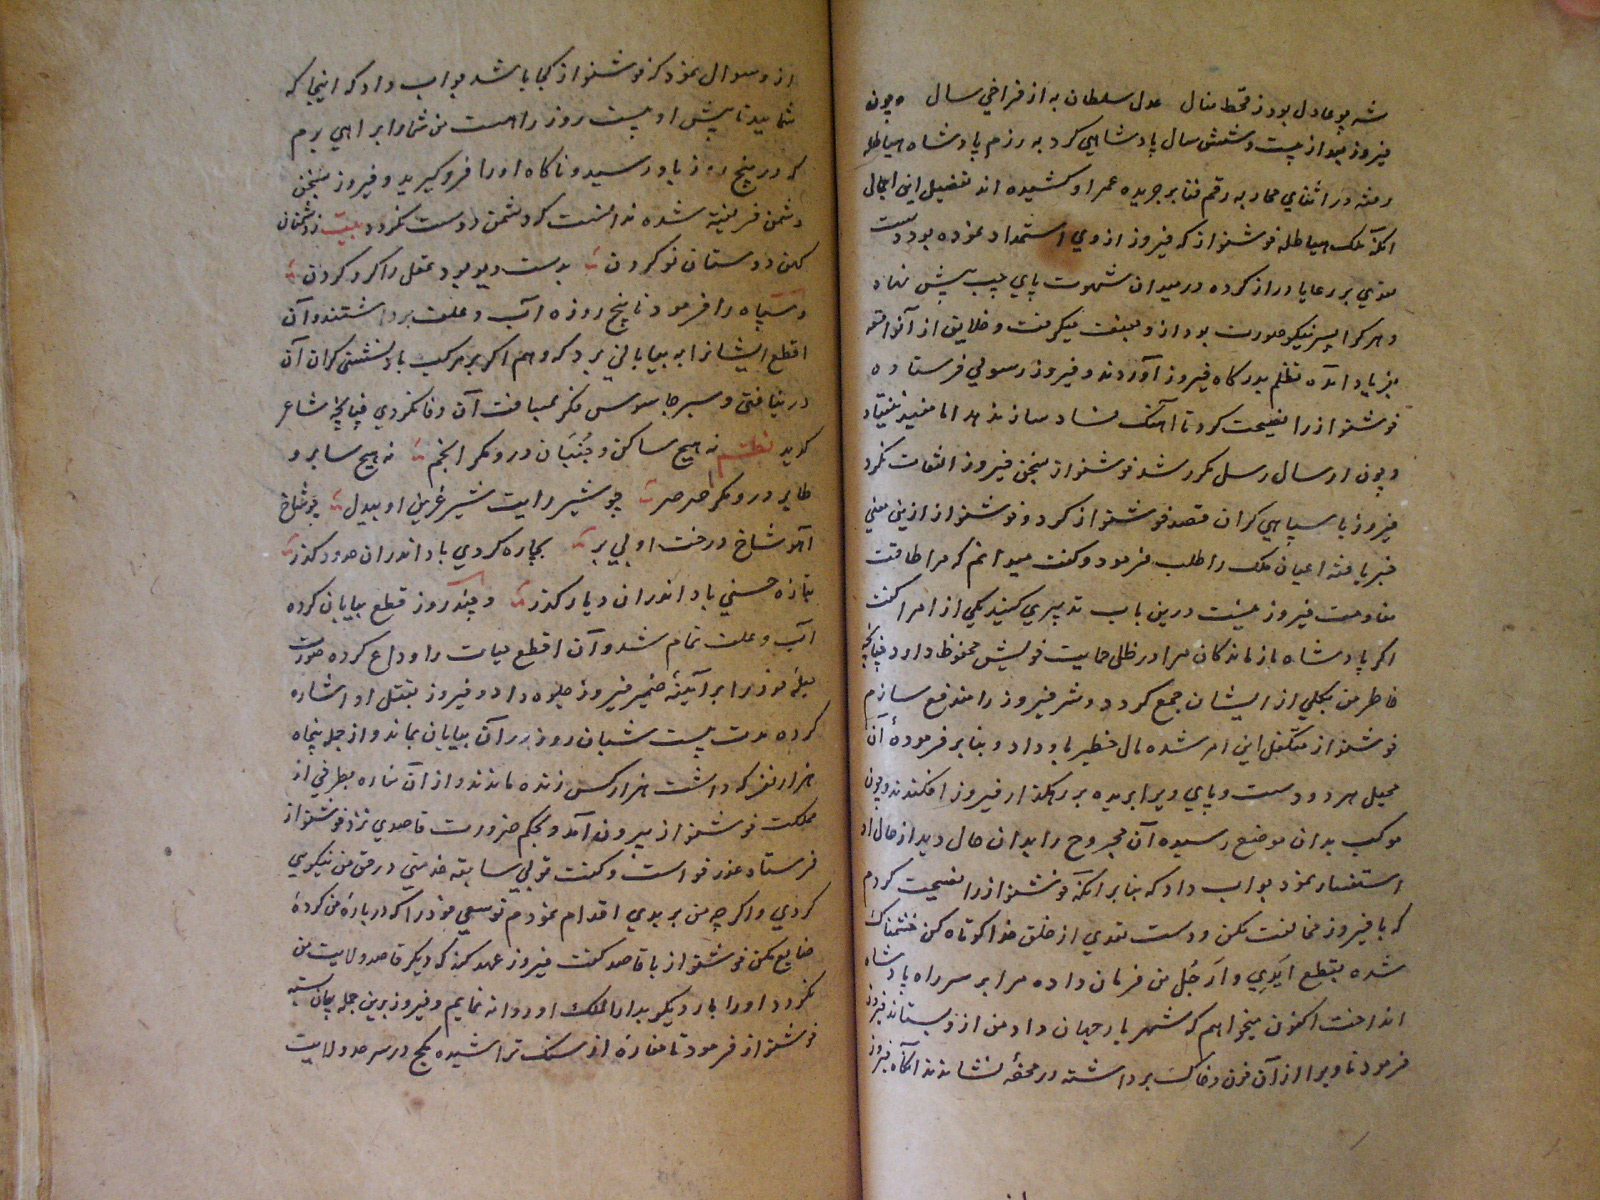 شه چو عادل بود ز قحط منال عدل سلطان به از فراخي سال و چون
فيروز بعد از بيست و شش سال پادشاهي كرد به رزم پادشاه هياطله
رفته در اثناي محاربه رقم فنا بر جريده عمر او كشيده اند تفصيل اين اجمال
آنكه ملك هياطله خوشنواز كه فيروز از وي استمداد نموده بود دست
تعدي بر رعايا دراز كرده در ميدان شهوت پاي چپ پيش نهاد
و هر كرا پسر نيكو صورت بود از و بعنف ميگرفت و خلايق از آن واقعه
بفرياد آمده تظلم بدرگاه فيروز آوردند و فيروز رسولي فرستاده
خوشنواز را نصيحت كرد تا آهنگ فساد سازند اما مفيد نيفتاد
و چون ارسال رسل مكرر شد خوشنواز بسخن فيروز التفات نكرد
فيروز با سپاهي گران قصد خوشنواز كرد و خوشنواز ازين معني
خبر يافته اعيان ملك را طلب فرمود و گفت ميدانم كه مرا طاقت
مقاومت فيروز نيست درين باب تدبيري كنيد يكي از امرا گفت
اگر پادشاه بازماندگان مرا در ظل حمايت خويش محفوظ دارد چنانچه
خاطر من بكلي از ايشان جمع گردد و شر فيروز را مندفع سازم
خوشنواز متكفل اين امر شده مال خطير باو داد و بنابر فرمودهٔ آن
محيل هر دو دست و پاي ويرا بريده بر رهگذار فيروز افكندند و چون
موكب بدان موضع رسيده آن مجروح را بدان حال ديد از حال او
استفسار نمود جواب داد كه بنابر آنكه خوشنواز را نصيحت كردم
كه با فيروز مخالفت مكن و دست تعدي از خلق خدا كوتاه كن خشمناك
شده بقطع ايدي و ارجل من فرمان داده مرا بر سر راه پادشاه
انداخت اكنون ميخواهم كه شهريار جهان داد من از و بستاند فيروز
فرمود تا ويرا از آن خون و خاك برداشته در محفه نشاندند آنگاه فيروز
از و سوال نمود كه خوشنواز كجا باشد جواب داد كه اينجا كه
شماييد تا پيش او بيست روز راهست من شما را براهي برم
كه در پنج روز باو رسيد و ناگاه او را فرو گيريد و فيروز بسخن
دشمن فريفته شده ندانست كه دشمن دوست نگردد بيت ز دشمنان
كهن دوستان نو كردن بدست ديو بود عقل را گرو كردن
و سپاه را فرمود تا پنج روزه آب و علف برداشتند و آن
اقطع ايشانرا به بياباني برد كه وهم اگر بر مركب باد نشستي كران آن
در نيافتي و سير جاسوس فكر بمسافت آن وفا نكردي چنانچه شاعر
گويد نظم نه هيچ ساكن و جنبان درو مگر انجم نه هيچ ساير و
طاير درو مگر صرصر چو شير رايت شير عرين او بيدل چو شاخ
آهو شاخ درخت او بي بر بچاره كردي باد اندران حدود گذر
بتازه حسني باد اندران ديار گذر و چند روز قطع بيابان كرده
آب و علف تمام شد و آن اقطع حيات را وداع كرده صورت
حيلهٔ خود را بر آيينهٔ ضمير فيروز جلوه داد و فيروز بقتل او اشاره
كرده مدت بيست شبان روز در آن بيابان بماند و از جمله پنجاه
هزار نفر كه داشت هزار كس زنده ماندند و از آن مفازه بطرفي از
مملكت خوشنواز بيرون آمد و بحكم ضرورت قاصدي نزد خوشنواز
فرستاد عذر خواست و گفت تو بي سابقه خدمتي در حق من نيكويي
كردي و اگر چه من بر بدي اقدام نمودم تو سعي خود را كه در بارهٔ من كردهٔ
ضايع مكن خوشنواز با قاصد گفت فيروز عهد كند كه ديگر قاصد ولايت من
نگردد او را بار ديگر بدار الملك او روانه نمايم و فيروز برين جمله پيمان بسته
خوشنواز فرمود تا مناره از سنگ تراشيده و گچ در سر حد ولايت